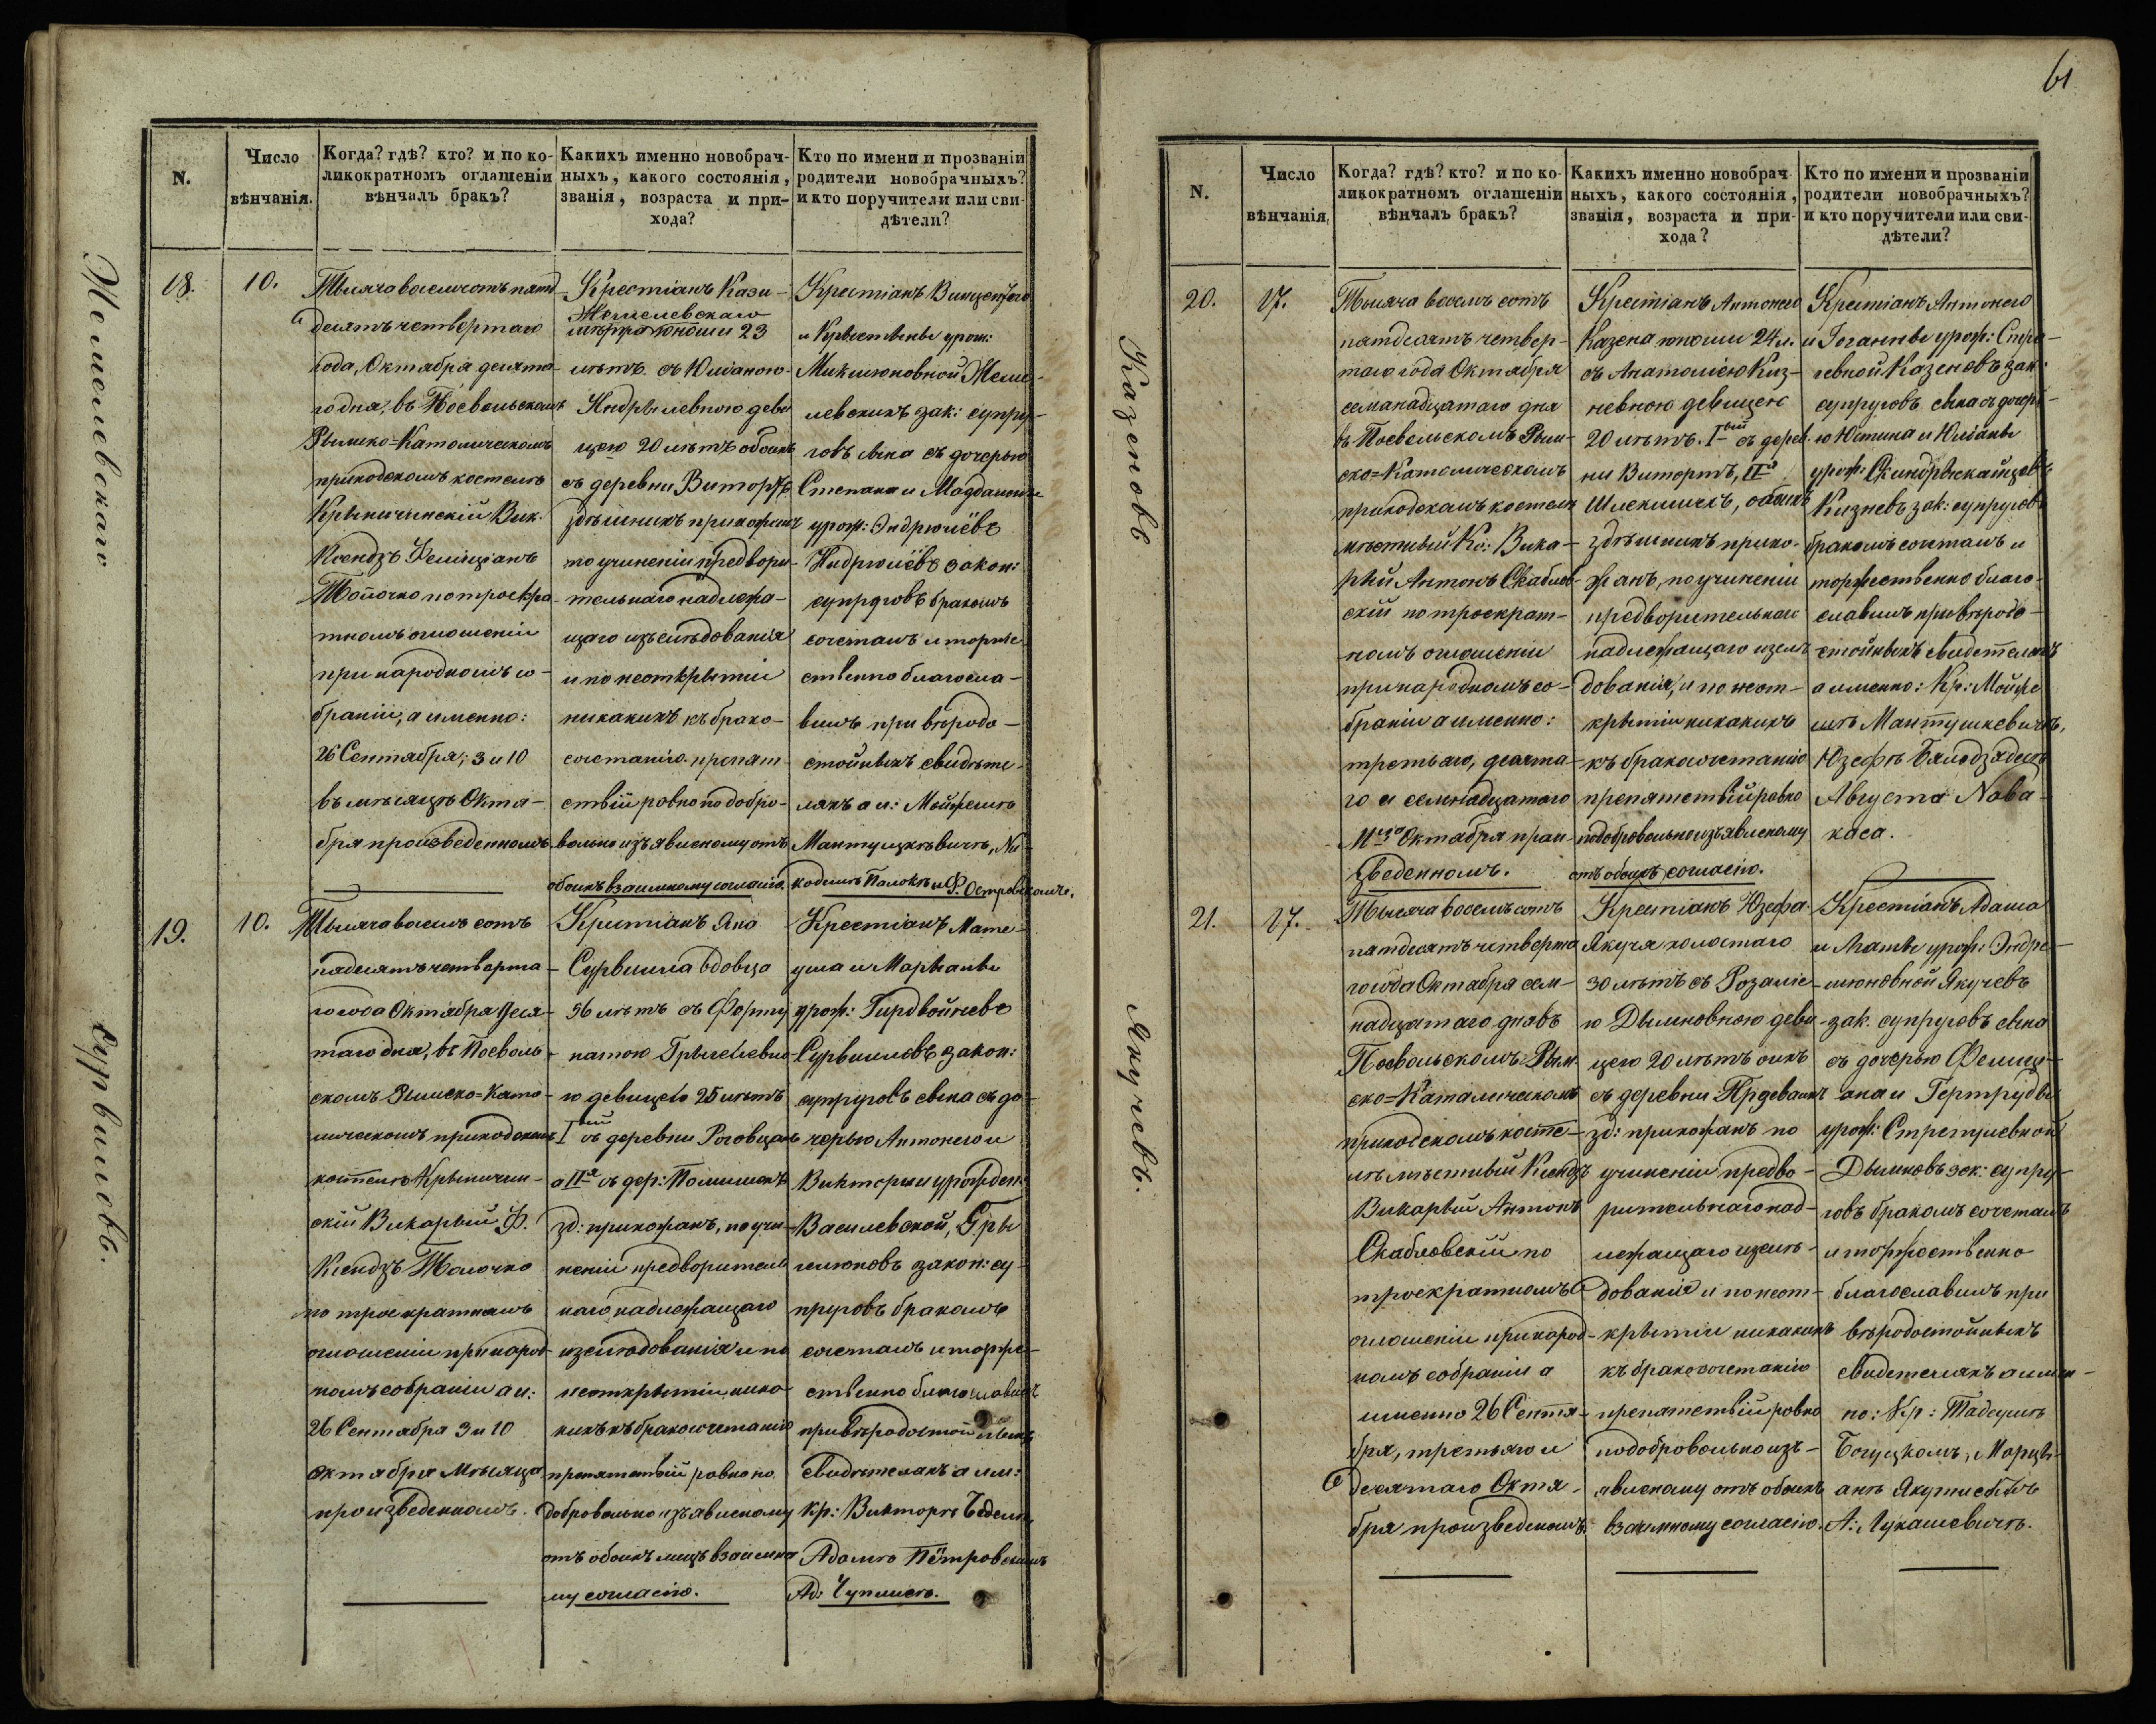 61
N.
Число
вѣнчанія.
Когда? гдѣ? кто? и по ко-
ликократномъ оглашеніи
вѣнчалъ бракъ?
Какихъ именно новобрач-
ныхъ, какого состоянія,
званія, возраста и при-
хода?
Кто по имени и прозваніи
родители новобрачныхъ?
и кто поручители или сви-
дѣтели?
18.
10.
Тысяча восемьсотъ пятд-
десятъ четвертаго
года, Октября десята-
го дня, въ Посвольскомъ
Римско=Католическомъ
приходскомъ костелѣ
Вик.
Ксендзъ Феліціанъ
по троекра-
тномъ оглашеніи
при народномъ со-
браніи, а именно:
26 Сентября, 3 и 10
въ мѣсяцѣ Октя-
бря произведенномъ.
Крестіанъ Кази-
мѣра юноши 23
лѣтъ съ Юліаною
Индрилевною деви-
цею 20 лѣтъ обоихъ
съ деревни
здѣшнихъ прихожанъ
по учиненіи предвори-
тельнаго надлежа-
щаго изслѣдованія
и по неоткрытіи
никакихъ къ брако-
сочетанію препят-
ствій ровно по добро-
вольно изъявленому отъ
обоихъ взаимному согласію.
Крестіанъ Винцентого
и урож:
зак: супру-
говъ сына съ дочерью
Степана и Магдалены
урож:
закон:
супруговъ бракомъ
сочеталъ и торже-
ственно благосла-
вилъ при вѣродо-
стойныхъ свидѣте-
ляхъ а и:
19.
10.
Тысяча восемь сотъ
пядесятъ четверта-
го года Октября деся-
таго дня, въ Посволь-
скомъ Римско=Като-
лическомъ приходскомъ
костелѣ
скій Викарный Ф.
Ксендзъ
по троекратномъ
оглашеніи при народ-
номъ собраніи а и:
26 Сентября 3 и 10
Октября Мѣсяца
произведенномъ.
Крестіанъ Яна
Сурвилла вдовца
56 лѣтъ съ Форту-
натою
ю девицею 25 лѣтъ
I вый съ деревни
а II я съ дер:
зд: прихожанъ, по учи-
неніи предворитель-
наго надлежащаго
изслѣдованія и по
неоткрытіи ника-
кихъ къ бракосочетанію
препятствій ровно по
добровольно изъявленому
отъ обоихъ лицъ взаимно-
му согласію.
Крестіанъ Мате-
уша и Маріанны
урож:
Сурвилловъ закон:
супруговъ сына съ до-
черью Антонего и
Викторыи урожден:
Василевской,
закон: су-
пруговъ бракомъ
сочеталъ и торже-
ственно благославилъ
при вѣродостойныхъ
свидѣтеляхъ а им:
кр: Викторѣ
Адамѣ
Ад:
Сурвиловъ.
N.
Число
вѣнчанія.
Когда? гдѣ? кто? и по ко-
ликократномъ оглашеніи
вѣнчалъ бракъ?
Какихъ именно новобрач-
ныхъ, какого состоянія,
званія, возраста и при-
хода?
Кто по имени и прозваніи
родители новобрачныхъ?
и кто поручители или сви-
дѣтели?
20.
17.
Тысяча восемь сотъ
пятдесятъ четвер-
таго года Октября
семнадцатаго дня
въ Посвольскомъ Рим-
ско=Католическомъ
приходскомъ костелѣ
мѣстный Кс: Вика-
рій Антонъ Скабіов-
скій по троекрат-
номъ оглашеніи
при народномъ со-
браніи а именно:
третьяго, десята-
го и семнадцатого
Октября прои-
зведенномъ.
Крестіанъ Антонего
Казена юноши 24 л.
съ Анатоліею Киз-
невною девицею
20 лѣтъ. I вый съ дерев-
ни II я
обоихъ
здѣшнихъ прихо-
жанъ, по учиненіи
предворительнаго
надлежащаго излѣ-
дованія, и по неот-
крытіи никакихъ
къ бракосочетанію
препятствій ровно
подобровольно изъявленому
отъ обоихъ согласію.
Крестіанъ Антонего
и Іоганны урож:
Казеновъ зак:
супруговъ сына съ дочерь-
ю Юстина и Юліаны
урож:
Кизневъ зак: супруговъ
бракомъ сочеталъ и
торжественно благо-
славилъ при вѣродо-
стойныхъ свидетеляхъ
а именно: Кр:
Юзефѣ
Августѣ Нова-
каса.
21.
17.
Тысяча восемь сотъ
пятдесятъ четверта-
го года Октября сем-
надцатаго дня въ
Посвольскомъ Рим-
ско=Католическомъ
приходскомъ косте-
лѣ мѣстный Ксендзъ
Викарный Антонъ
Скабіовскій по
троекратномъ
оглашеніи при народ-
номъ собраніи а
именно 26 Сентя-
бря, третьяго и
десятаго Октя-
бря произведеномъ.
Крестіанъ Юзефа
Якуча холостаго
30 лѣтъ съ Розаліе-
ю Дымновною деви-
цею 20 лѣтъ оихъ
съ деревни
зд: прихожанъ по
учиненіи предво-
рительнаго над-
лежащаго излѣ-
дованія и по неот-
крытіи никакихъ
къ бракосочетанію
препятствій ровно
подобровольно изъ-
явленому отъ обоихъ
взаимному согласію.
Крестіанъ Адама
и Агаты урож:
Якучевъ
зак. супруговъ сына
съ дочерью Фелиці-
ана и Гертруды
урож:
Дымновъ зак: супру-
говъ бракомъ сочеталъ
и торжественно
благославилъ при
вѣродостойныхъ
свидетеляхъ а имен-
но: Кр: Тадеушѣ
А: Лукашевичѣ.
Казеновъ
Якучевъ.